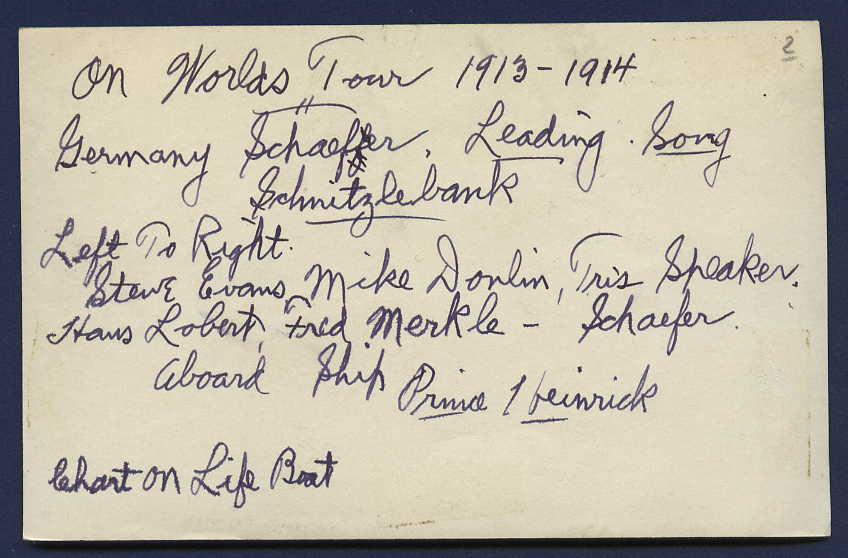 2
On Worlds Tour 1913-1914
Germany Schaefer, Leading Song
Schnitzlebank
Left To Right.
Steve Evans, Mike Donlin, Tris Speaker.
Hans Lobert, Fred Merkle - Schaefer.
aboard Ship Prince Heinrick
Chart on Life Boat